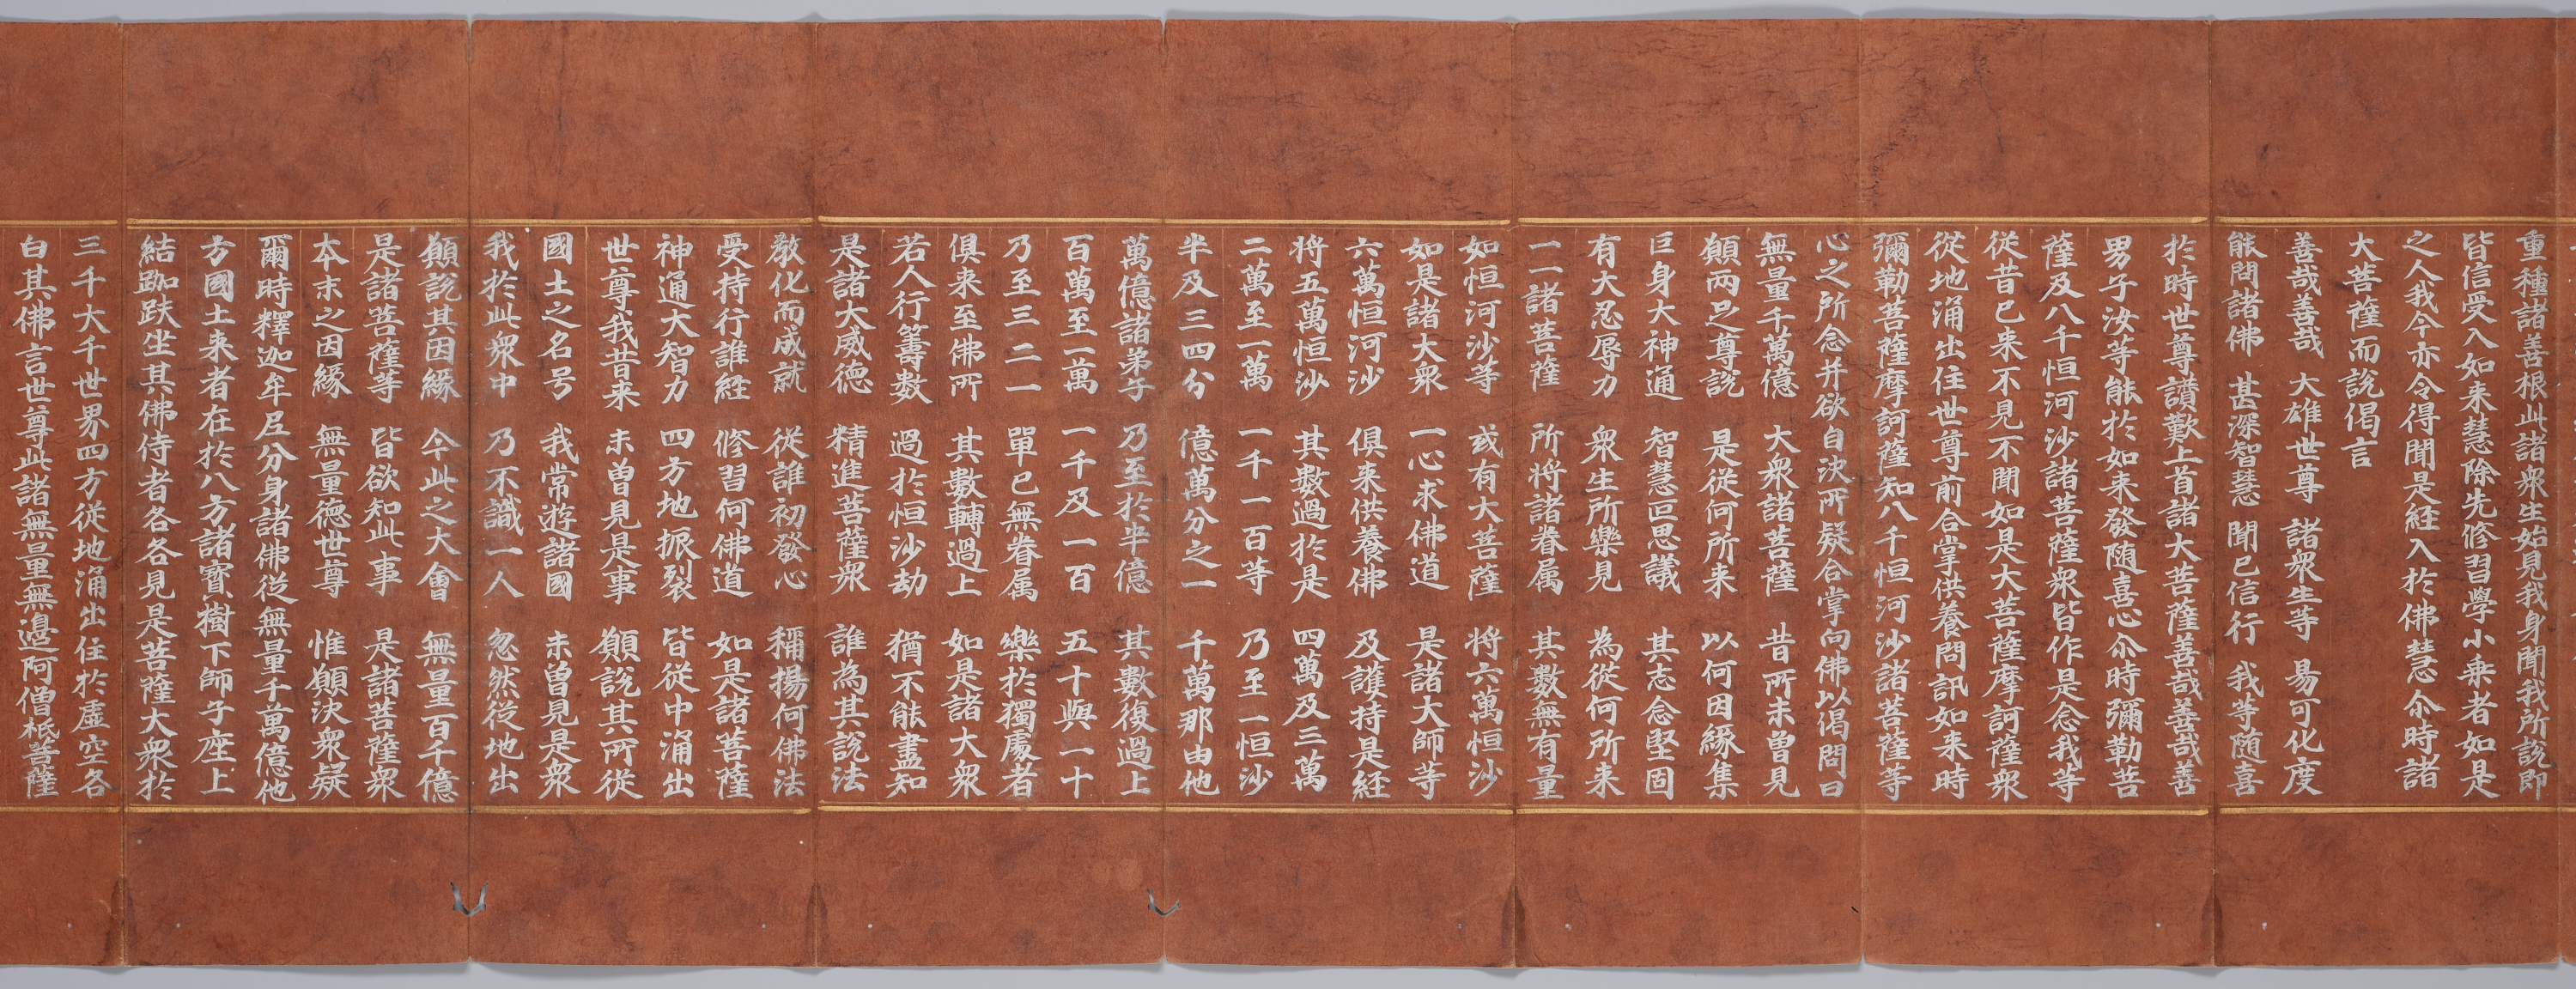 重種諸善根此諸衆生始見我身聞我所說即
皆信受入如来慧除先修習學小乗者如是
之人我今亦令得聞是経入於佛慧尒時諸
大菩薩而說偈言
善哉善哉　大雄世尊　諸衆生等　易可化度
能問諸佛　甚深智慧　聞已信行　我等随喜
於時世尊讃歎上首諸大菩薩善哉善哉善
男子汝等能於如来發随喜心尒時彌勒菩
薩及八千恒河沙諸菩薩衆皆作是念我等
従昔已来不見不聞如是大菩薩摩訶薩衆
従地涌出住世尊前合掌供養問訊如来時
彌勒菩薩摩訶薩知八千恒河沙諸菩薩等
心之所念并欲自決所疑合掌向佛以偈問曰
無量千萬億　大衆諸菩薩　昔所未曽見
願兩足尊說　是従何所来　以何因縁集
巨身大神通　智慧叵思議　其志念堅固
有大忍辱力　衆生所樂見　為従何所来
一一諸菩薩　所将諸眷属　其數無有量
如恒河沙等　或有大菩薩　将六萬恒沙
如是諸大衆　一心求佛道　是諸大師等
六萬恒河沙　俱来供養佛　及護持是経
将五萬恒沙　其數過於是　四萬及三萬
二萬至一萬　一千一百等　乃至一恒沙
半及三四分　億萬分之一　千萬那由他
萬億諸弟子　乃至於半億　其數復過上
百萬至一萬　一千及一百　五十與一十
乃至三二一　單已無眷属　樂於獨處者
俱来至佛所　其數轉過上　如是諸大衆
若人行籌数　過於恒沙劫　猶不能盡知
是諸大威德　精進菩薩衆　誰為其說法
教化而成就　従誰初發心　稱揚何佛法
受持行誰経　修習何佛道　如是諸菩薩
神通大智力　四方地振裂　皆従中涌出
世尊我昔来　未曽見是事　願說其所従
國土之名号　我常遊諸國　未曽見是衆
我於此衆中　乃不識一人　忽然従地出
願說其因縁　今此之大會　無量百千億
是諸菩薩等　皆欲知此事　是諸菩薩衆
本末之因縁　無量德世尊　惟願決衆疑
爾時釋迦牟尼分身諸佛従無量千萬億他
方國土来者在於八方諸寶樹下師子座上
結跏趺坐其佛侍者各各見是菩薩大衆於
三千大千世界四方従地涌出住於虚空各
白其佛言世尊此諸無量無邊阿僧祇菩薩